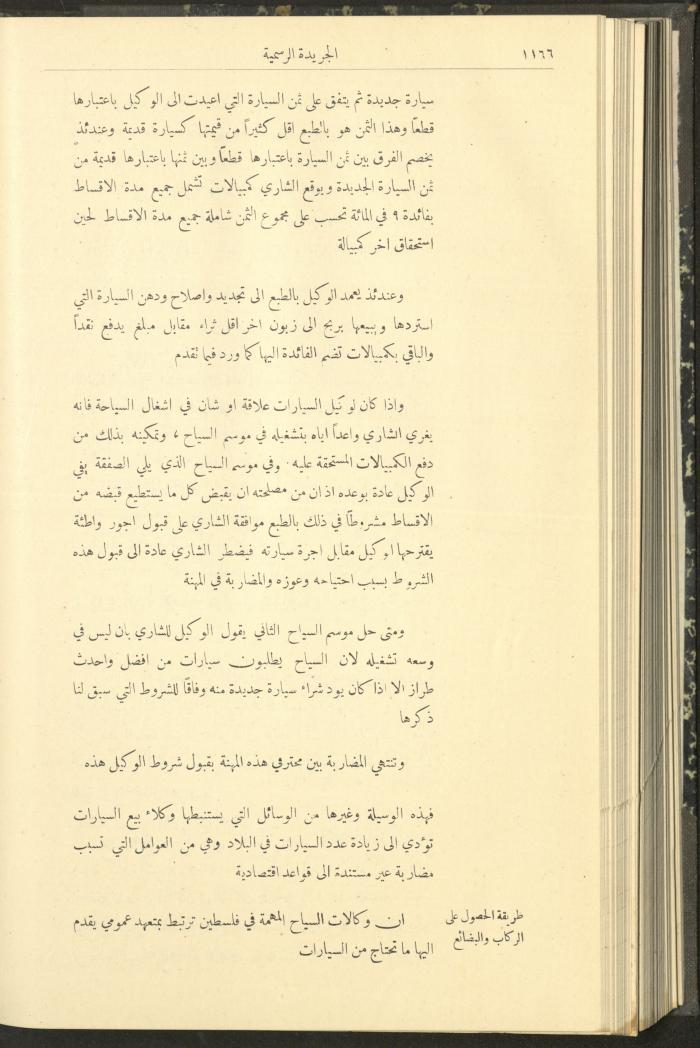 ١١٦٦
الجريدة الرسمية
سيارة جديدة ثم يتفق على ثمن السيارة التي اعيدت الى الوكيل باعتبارها
قطعاً وهذا الثمن هو بالطبع اقل كثيراً من قيمتها كسيارة قديمة وعندئذ
يخصم الفرق بين ثمن السيارة باعتبارها قطعاً وبين ثمنها باعتبارها قديمة من
ثمن السيارة الجديدة ويوقع الشاري كمبيالات تشمل جميع مدة الاقساط
بفائدة ٩ في المائة تحسب على مجموع الثمن شاملة جميع مدة الاقساط لحين
استحقاق اخر كمبيالة
وعندئذ يعمد الوكيل بالطبع الى تجديد واصلاح ودهن السيارة التي
استردها ويبيعها بربح الى زبون اخر اقل ثراء مقابل مبلغ يدفع نقداً
والباقي بكمبيالات تضم الفائدة اليها كما ورد فيما تقدم
واذا كان لوكيل السيارات علاقة او شان في اشغال السياحة فانه
يغري الشاري واعداً اياه بتشغيله في موسم السياح ، وتمكينه بذلك من
دفع الكمبيالات المستحقة عليه . وفي موسم السياح الذي يلي الصفقة يفي
الوكيل عادة بوعده اذ ان من مصلحته ان يقبض كل ما يستطيع قبضه من
الاقساط مشروطاً في ذلك بالطبع موافقة الشاري على قبول اجور واطئة
يقترحها الوكيل مقابل اجرة سيارته فيضطر الشاري عادة الى قبول هذه
الشروط بسبب احتياجه وعوزه والمضاربة في المهنة
ومتى حل موسم السياح الثاني يقول الوكيل للشاري بان ليس في
وسعه تشغيله لان السياح يطلبون سيارات من افضل واحدث
طراز الا اذا كان يود شراء سيارة جديدة منه وفاقاً للشروط التي سبق لنا
ذكرها
وتنتهي المضاربة بين محترفي هذه المهنة بقبول شروط الوكيل هذه
فهذه الوسيلة وغيرها من الوسائل التي يستنبطها وكلاء بيع السيارات
تؤدي الى زيادة عدد السيارات في البلاد وهي من العوامل التي تسبب
مضاربة غير مستندة الى قواعد اقتصادية
طريقة الحصول على
الركاب والبضائع
ان وكالات السياح المهمة في فلسطين ترتبط بمتعهد عمومي يقدم
اليها ما تحتاج من السيارات